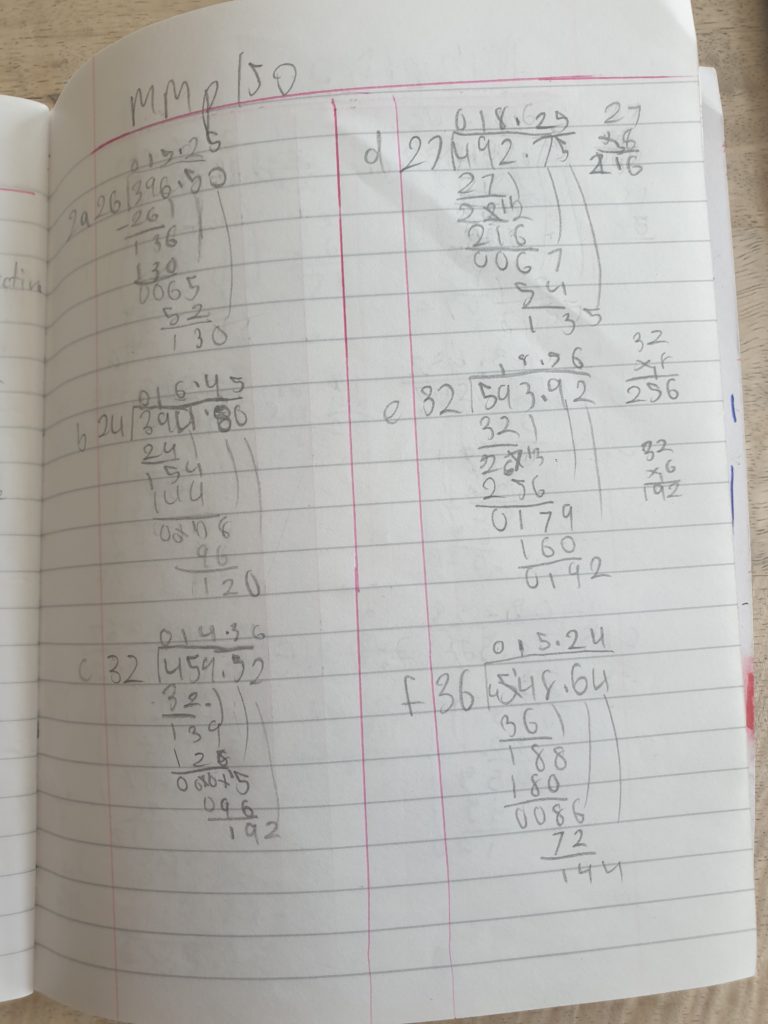 MMp 150
015.25
2a 26 396.50
-26
136
130
0065
52
130
016.45
b 24 394.80
24
154
144
96
120
014.36
c 32 459.52
32
139
128
096
192
018.25
d 27 492.75
27
216
0067
54
135
27
x8
216
18.56
e 32 593.92
32
256
0179
160
0192
32
x8
256
32
x6
192
015.24
f 36 548.64
36
188
180
0086
72
144